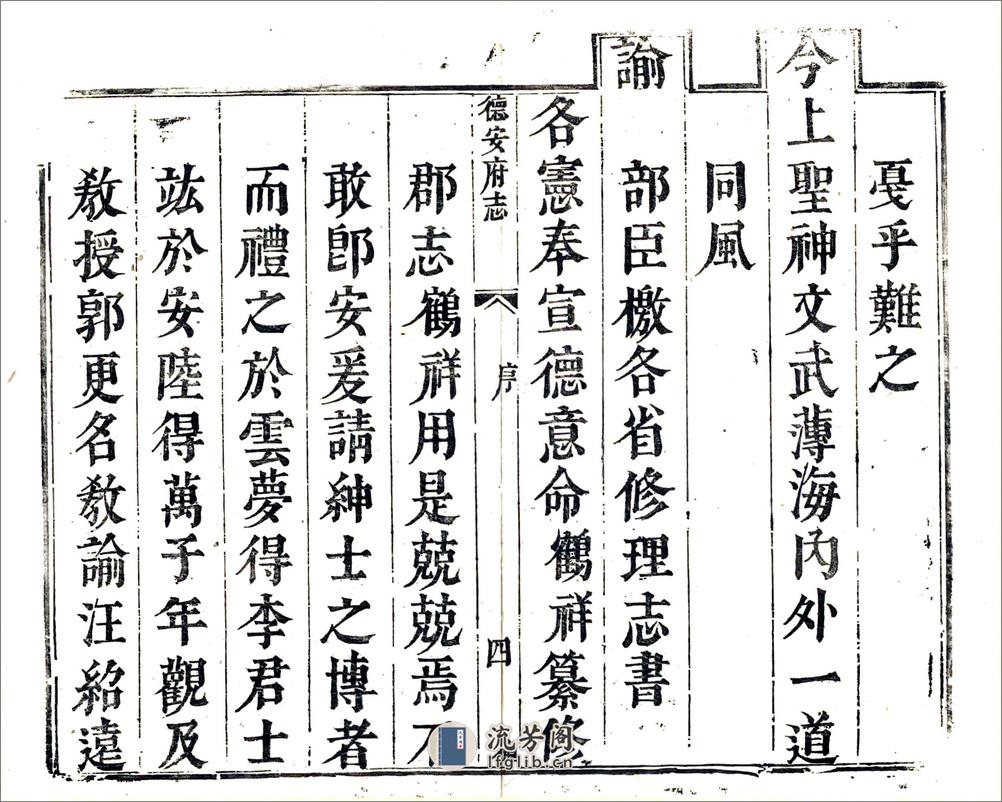 戞乎難之
今上聖神文武薄海內外一道
同風
諭部臣檄各省修理志書
各憲奉宣德意命鶴祥纂修
德安府志 序 四
郡志鶴祥用是兢兢焉不
敢卽安爰請紳士之博者
而禮之於雲夢得李君士
竑於安陸得萬子年觀及
敎授郭更名敎諭汪紹遠
流芳阁
lfglib.cn